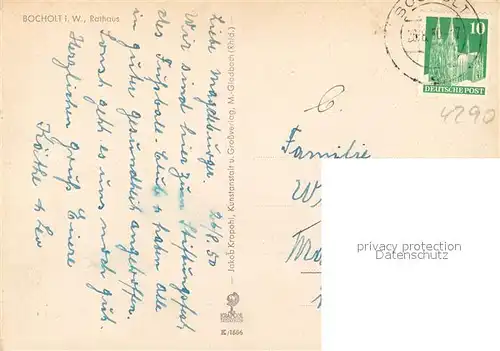 BOCHOLT I. W., Rathaus
Liebe Magdeburger. 26/8.50
Wir sind hier zum Stiftungsfest
des Fußball-Club & haben alle
in guter Gesundheit angetroffen.
Sonst geht es uns noch gut.
Herzlichen Gruß Eure
Käthe & Leo
Jakob Krapohl, Kunstanstalt u. Großverlag, M.-Gladbach (Rhld.)
K/1666
BOCHOLT
10
DEUTSCHE POST
4290
Familie
W
privacy protection
Datenschutz